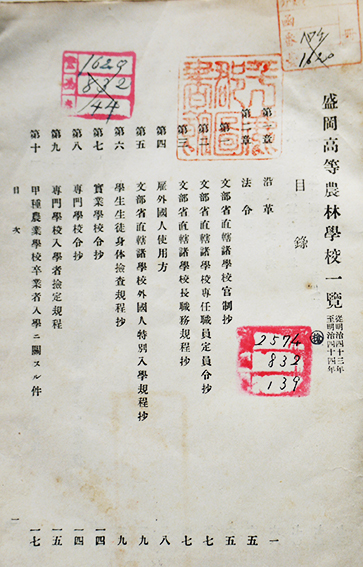 盛岡高等農林學校一覽
從明治四十三年
至明治四十四年
目錄
第一章 沿革 一
第二章 法令 五
第一 文部省直轄諸學校官制抄 五
第二 文部省直轄諸學校專任職員定員令抄 七
第三 文部省直轄諸學校長職務規程抄 七
第四 雇外國人使用方 八
第五 文部省直轄諸學校外國人特別入學規程抄 九
第六 學生生徒身体檢查規程抄 九
第七 實業學校令抄 一四
第八 專門學校令抄 一四
第九 專門學校入學者檢定規程 一五
第十 甲種農業學校卒業者入學ニ關スル件 一七
目次 一
1629
832
144
2574
832
139